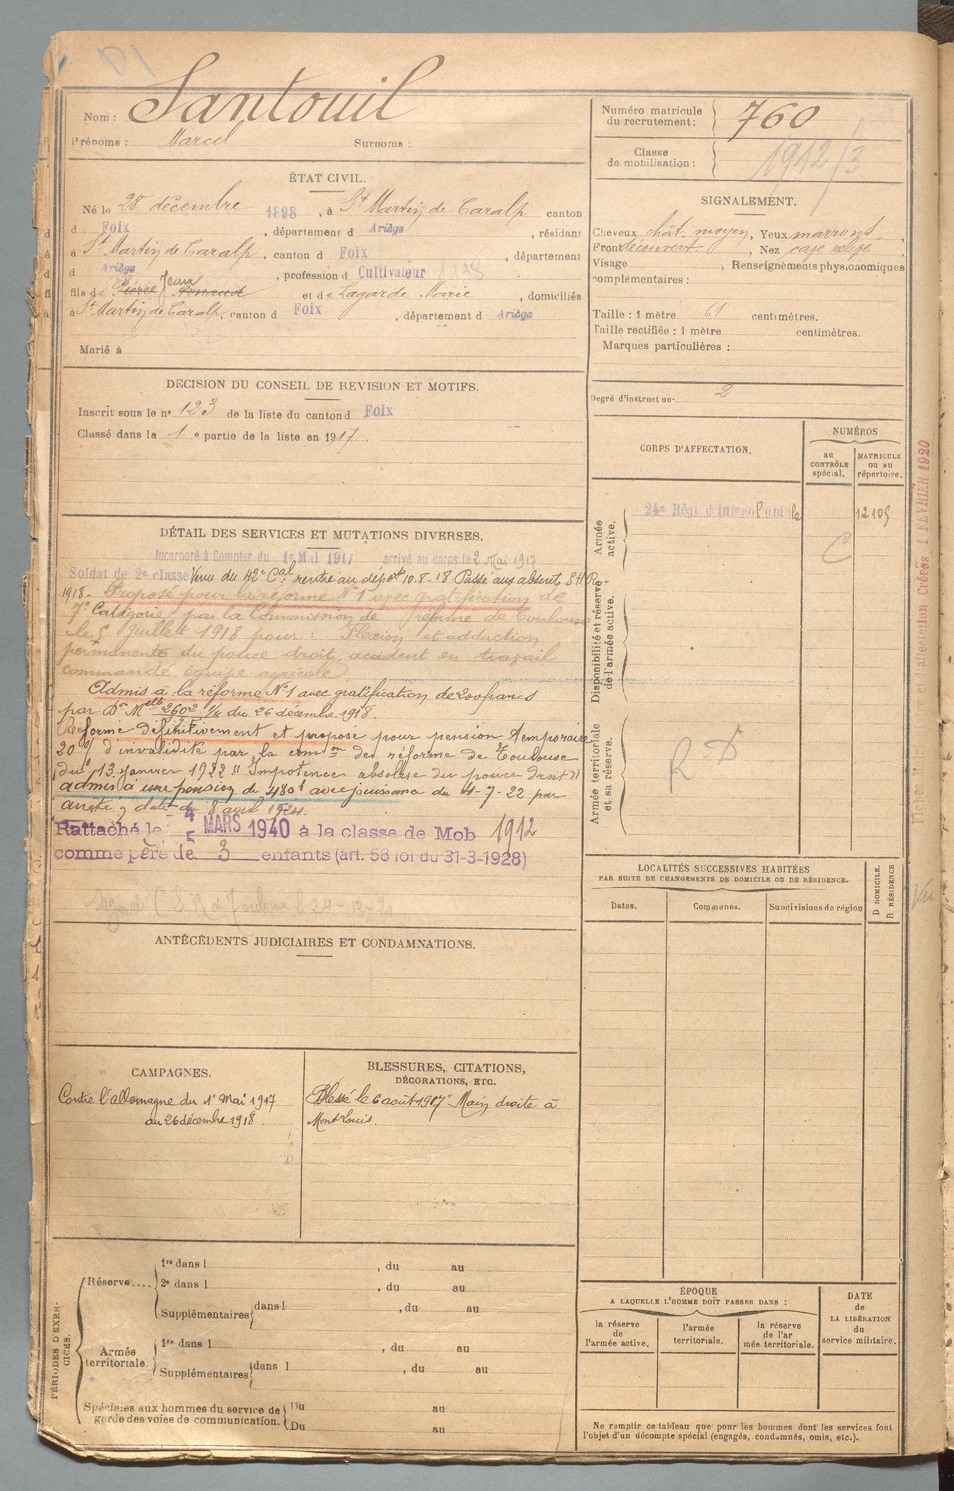 Nom : Santouil
Prénoms : Marcel Surnoms :
Numéro matricule du recrutement : 760
Classe de mobilisation : 1912/3
ÉTAT CIVIL.
Né le 28 décembre 1898, à St Martin de Caralp canton
d Foix, département d Ariège, résidant
à St Martin de Caralp, canton d Foix, département
d Ariège, profession d Cultivateur
fils de Pierre Jean et de Lagarde Marie, domiciliés
à St Martin de Caralp, canton d Foix, département d Ariège
Marié à
SIGNALEMENT.
Cheveux chât. moyen, Yeux marrons,
Front découvert, Nez
Visage, Renseignements physionomiques
complémentaires :
Taille : 1 mètre 61 centimètres.
Taille rectifiée : 1 mètre centimètres.
Marques particulières :
Degré d'instruction : 2
DÉCISION DU CONSEIL DE REVISION ET MOTIFS.
Inscrit sous le n° 123 de la liste du canton d Foix
Classé dans la 1 e partie de la liste en 1917.
DÉTAIL DES SERVICES ET MUTATIONS DIVERSES.
Incorporé à Compter du 1er Mai 1917 arrivé au corps le 2 Mai 1917
Soldat de 2e classe Venu du 42e Cal rentré au dépôt 10.8.18 Passé aux absents
1918. Proposé pour la réforme N°1 avec gratification de
7e Catégorie par la Commission de réforme de Toulouse
le 5 Juillet 1918 pour : Flexion et adduction
permanente du pouce droit, accident en travail
commandé équipe agricole
Admis à la réforme N°1 avec gratification de 200 francs
par Dn Melle 2602 du 26 décembre 1918.
Réformé définitivement et proposé pour pension temporaire
20 % d'invalidité par la comon de réforme de Toulouse
du 13 janvier 1922 "Impotence absolue du pouce droit"
admis à une pension de 480f avec jouissance du 4-7-22 par
arrêté en date du 8 avril 1924.
Rattaché le 4 5 MARS 1940 à la classe de Mob 1912
comme père de 3 enfants (art. 58 loi du 31-3-1928)
ANTÉCÉDENTS JUDICIAIRES ET CONDAMNATIONS.
CAMPAGNES.
Contre l'allemagne du 1er Mai 1917
au 26 décembre 1918.
BLESSURES, CITATIONS,
DÉCORATIONS, ETC.
Blessé le 6 août 1917 Main droite à
Mont-Louis.
PÉRIODES D'EXERCICES.
Réserve.... 1re dans l, du au
2e dans l, du au
Supplémentaires dans l, du au
Armée territoriale. 1re dans l, du au
Supplémentaires dans l, du au
Spéciales aux hommes du service de garde des voies de communication. Du au
Du au
CORPS D'AFFECTATION.
NUMÉROS
au CONTRÔLE spécial.
MATRICULE ou au répertoire.
Armée active.
24e Régt d'Infie Coloniale 12109
C
Disponibilité et réserve de l'armée active.
Armée territoriale et sa réserve.
R-D
LOCALITÉS SUCCESSIVES HABITÉES
PAR SUITE DE CHANGEMENTS DE DOMICILE OU DE RÉSIDENCE.
Dates. Communes. Subdivisions de région
D DOMICILE. R RÉSIDENCE
ÉPOQUE
A LAQUELLE L'HOMME DOIT PASSER DANS :
la réserve de l'armée active.
l'armée territoriale.
la réserve de l'armée territoriale.
DATE de LA LIBÉRATION du service militaire.
Ne remplir ce tableau que pour les hommes dont les services font
l'objet d'un décompte spécial (engagés, condamnés, omis, etc.).
1 FÉVRIER 1920